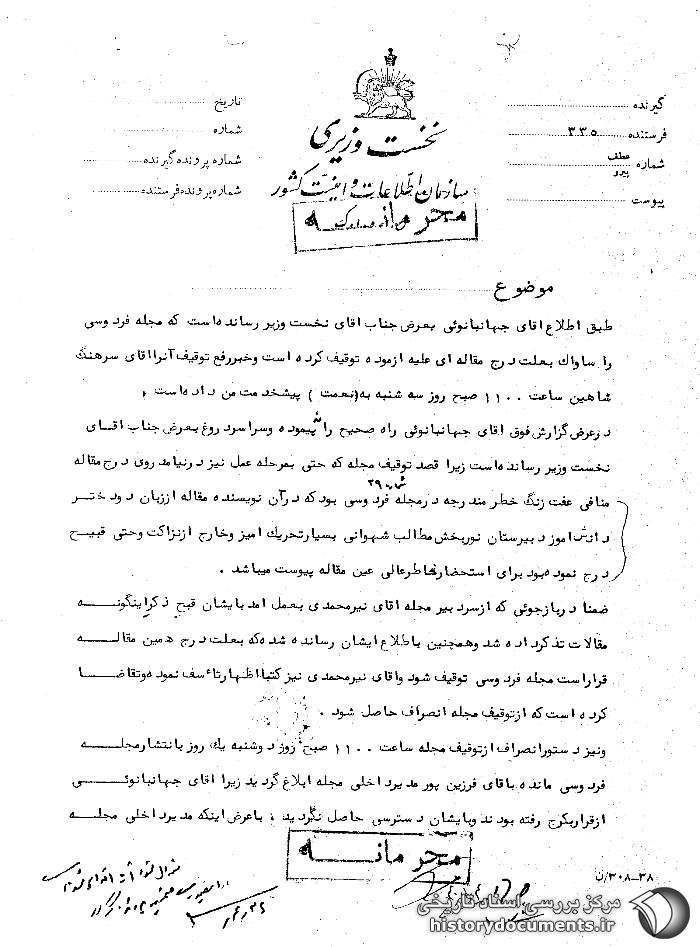 گیرنده
تاریخ
فرستنده ۳۳۵
شماره
شماره عطف پیرو
شماره پرونده گیرنده
پیوست
شماره پرونده فرستنده
نخست وزیری
سازمان اطلاعات و امنیت کشور
محرمانه
موضوع
طبق اطلاع اقای جهانبانوئی بعرض جناب اقای نخست وزیر رسانده است که مجله فردوسی
را ساواك بعلت درج مقاله ای علیه ازموده توقیف کرده است وخبر رفع توقیف آنرا اقای سرهنگ
شاهین ساعت ۱۱۰۰ صبح روز سه شنبه به (نعمت) پیشخدمت من داده است .
درعرض گزارش فوق اقای جهانبانوئی راه صحیح را نپیموده وسراسر دروغ بعرض جناب اقای
نخست وزیر رسانده است زیرا قصد توقیف مجله که حتی بمرحله عمل نیز درنیامد روی درج مقاله
منافی عفت زنگ خطر مندرجه در مجله فردوسی شماره ۲۹ بود که در آن نویسنده مقاله اززبان دودختر
دانش اموز دبیرستان نوربخش مطالب شهوانی بسیار تحریك امیز وخارج ازنزاکت وحتی قبیح
درج نموده بود برای استحضار خاطر عالی عین مقاله پیوست میباشد .
ضمنا دربازجوئی که ازسردبیر مجله اقای نیرمحمدی بعمل امد بایشان قبح ذکر اینگونه
مقالات تذکر داده شد وهمچنین باطلاع ایشان رسانده شده که بعلت درج همین مقاله
قراراست مجله فردوسی توقیف شود واقای نیرمحمدی نیز کتبا اظهار تاءسف نموده وتقاضا
کرده است که ازتوقیف مجله انصراف حاصل شود .
ونیز دستور انصراف ازتوقیف مجله ساعت ۱۱۰۰ صبح روز دوشنبه یك روز بانتشار مجله
فردوسی مانده باقای فرزین پور مدیر داخلی مجله ابلاغ گردید زیرا اقای جهانبانوئی
ازقرار بکرج رفته بودند وبایشان دسترسی حاصل نگردید ، باعرض اینکه مدیر داخلی مجله
محرمانه
۳۸-۳۰۸/ن
مرکز بررسی اسناد تاریخی
historydocuments.ir